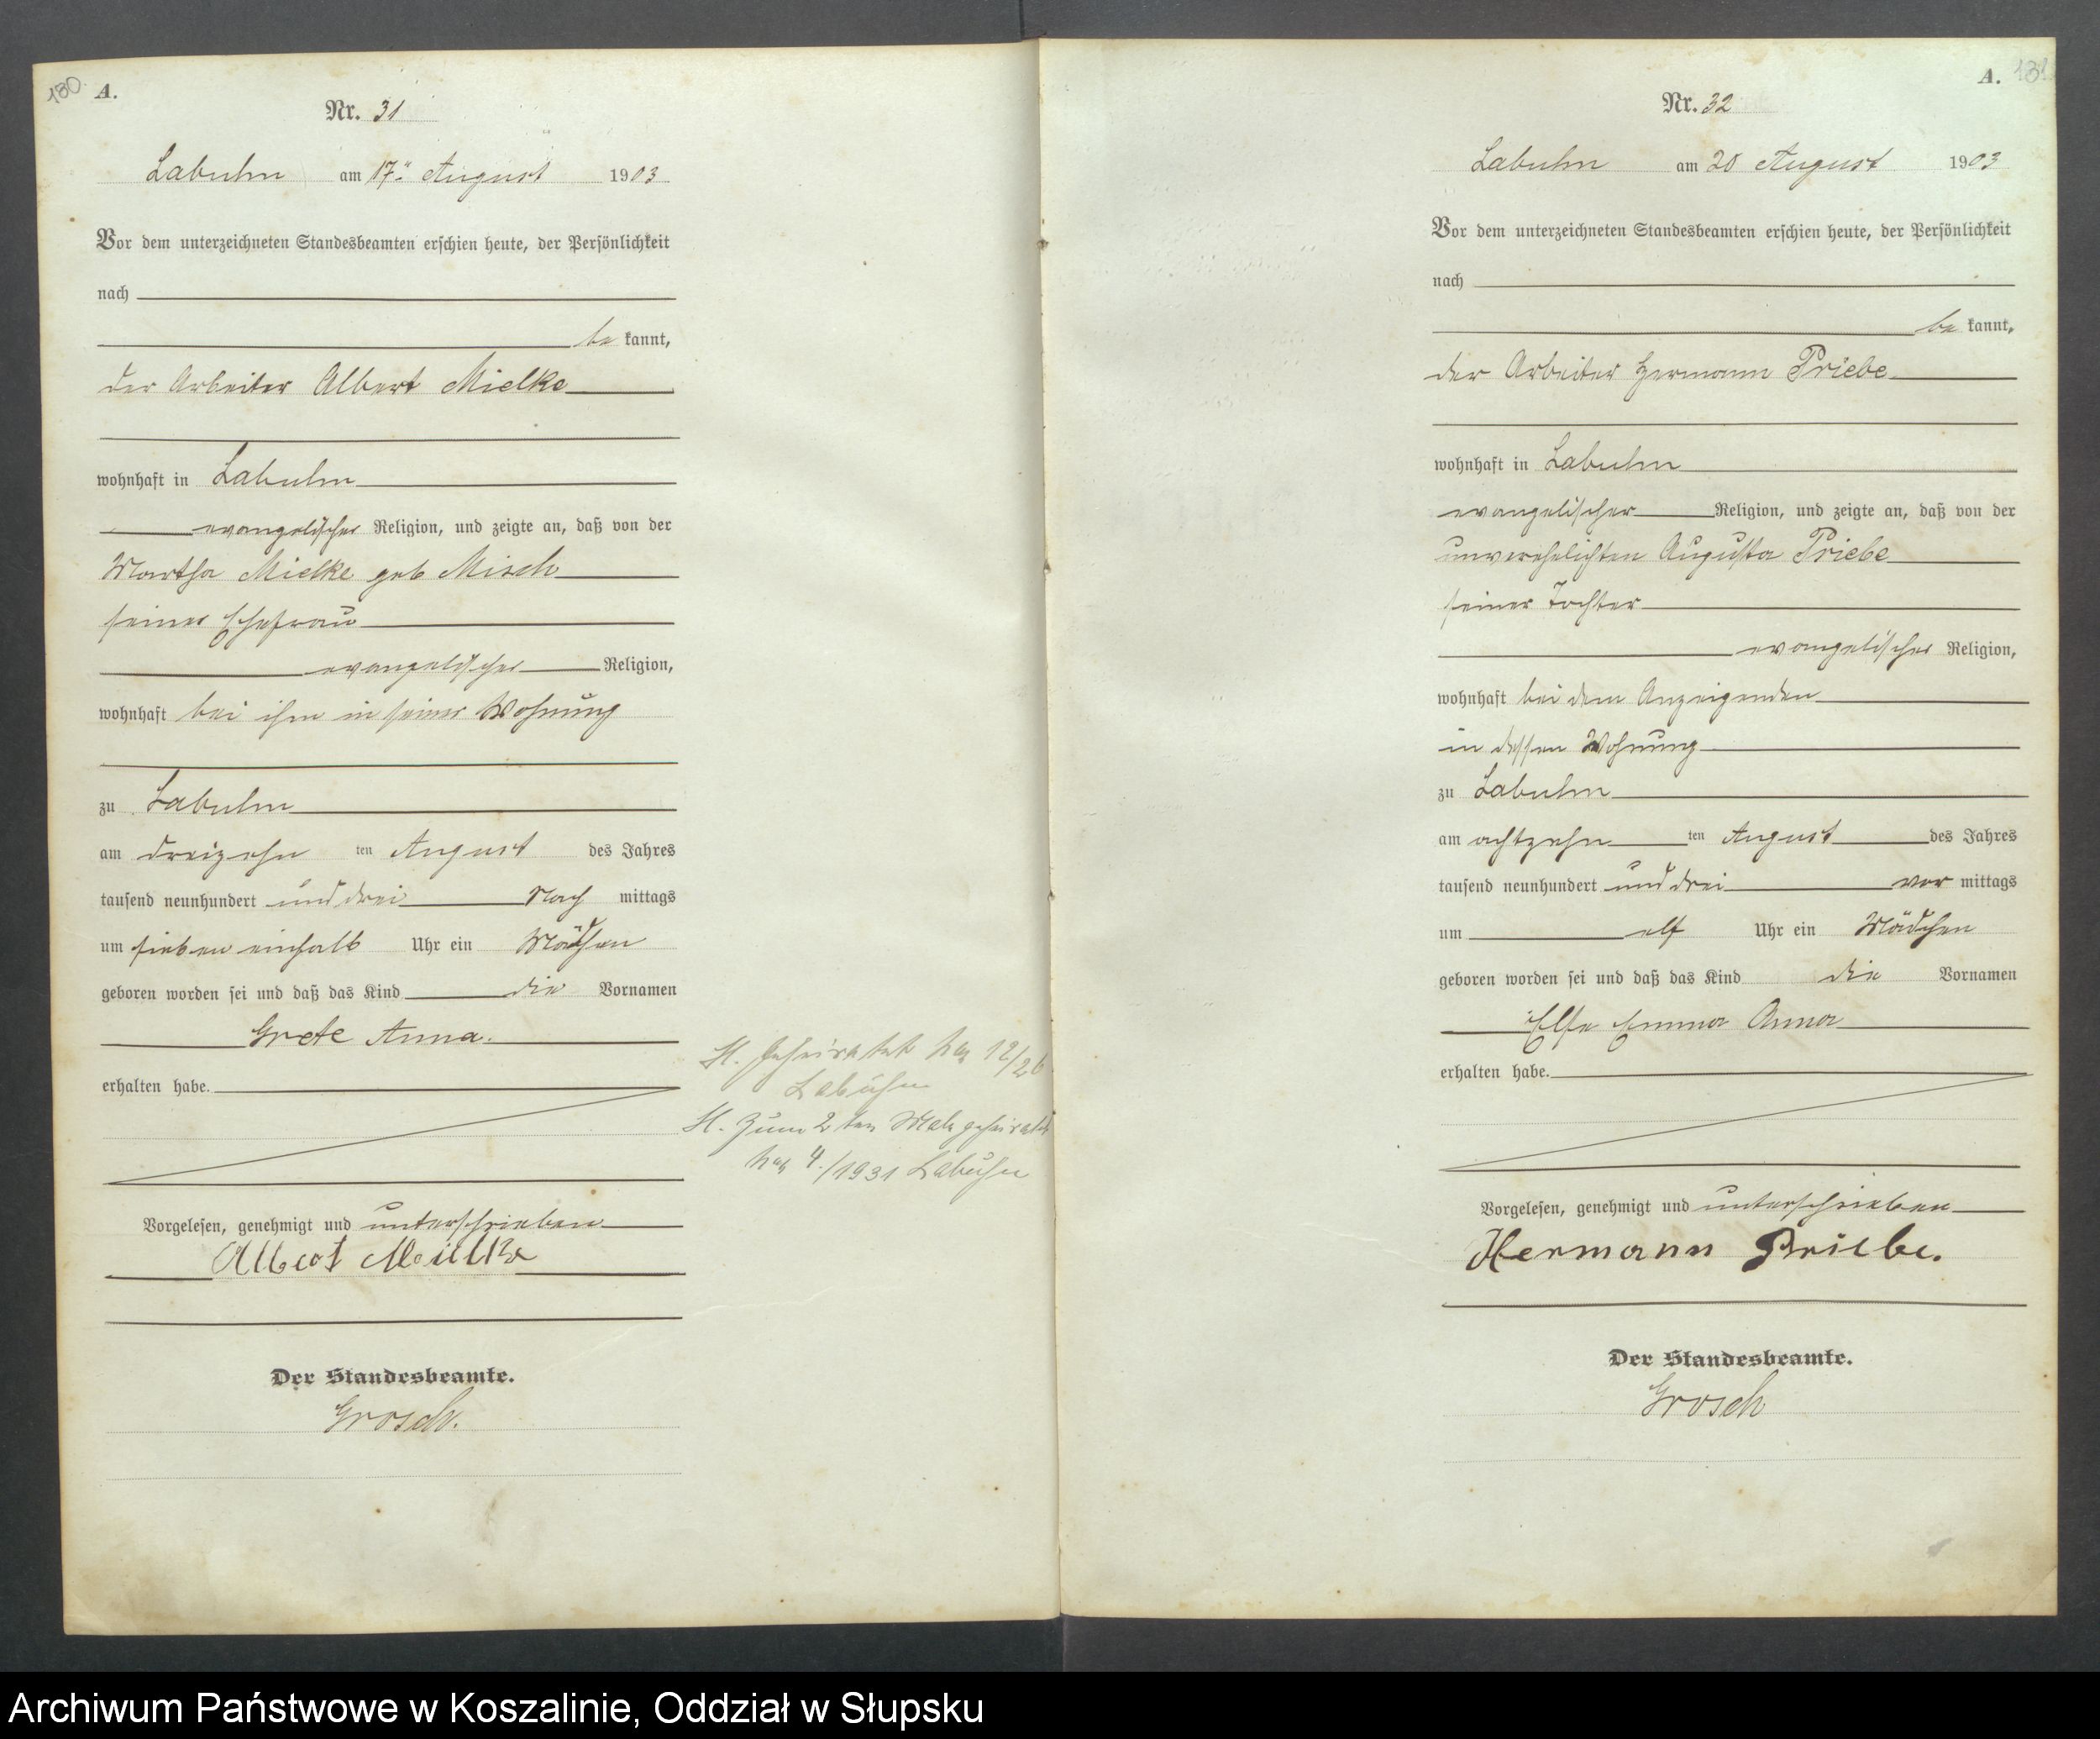 130.
A.
Nr. 31
Labuhn am 17ⁿ August 1903
Vor dem unterzeichneten Standesbeamten erschien heute, der Persönlichkeit
nach
be kannt,
der Arbeiter Albert Mielke
wohnhaft in Labuhn
evangelischer Religion, und zeigte an, daß von der
Martha Mielke geb Misch
seiner Ehefrau
evangelischer Religion,
wohnhaft bei ihm in seiner Wohnung
zu Labuhn
am dreizehn ten August des Jahres
tausend neunhundert und drei Nach mittags
um sieben einhalb Uhr ein Mädchen
geboren worden sei und daß das Kind die Vornamen
Grete Anna.
erhalten habe.
Vorgelesen, genehmigt und unterschrieben
Albert Mielke
Der Standesbeamte.
Grosch.
H. geheiratet 12/26
Labuhn
H. Zum 2ten Male geheiratet
4./1931 Labuhn
131.
A.
Nr. 32
Labuhn am 20 August 1903
Vor dem unterzeichneten Standesbeamten erschien heute, der Persönlichkeit
nach
be kannt,
der Arbeiter Hermann Priebe
wohnhaft in Labuhn
evangelischer Religion, und zeigte an, daß von der
unverehelichten Auguste Priebe
seiner Tochter
evangelischer Religion,
wohnhaft bei dem Anzeigenden
in dessen Wohnung
zu Labuhn
am achtzehn ten August des Jahres
tausend neunhundert und drei vor mittags
um elf Uhr ein Mädchen
geboren worden sei und daß das Kind die Vornamen
Else Emma Anna
erhalten habe.
Vorgelesen, genehmigt und unterschrieben
Hermann Priebe.
Der Standesbeamte.
Grosch
Archiwum Państwowe w Koszalinie, Oddział w Słupsku